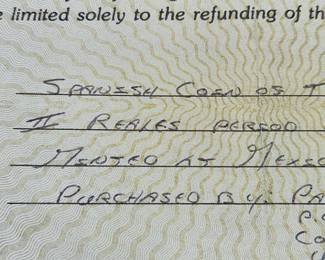 e limited solely to the refunding of th
SPANISH COIN OF T
II REALES PERIOD
MINTED AT MEXIC
PURCHASED BY: PA
P.O
Co